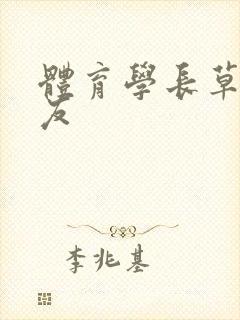 體育學長草
友
李兆基